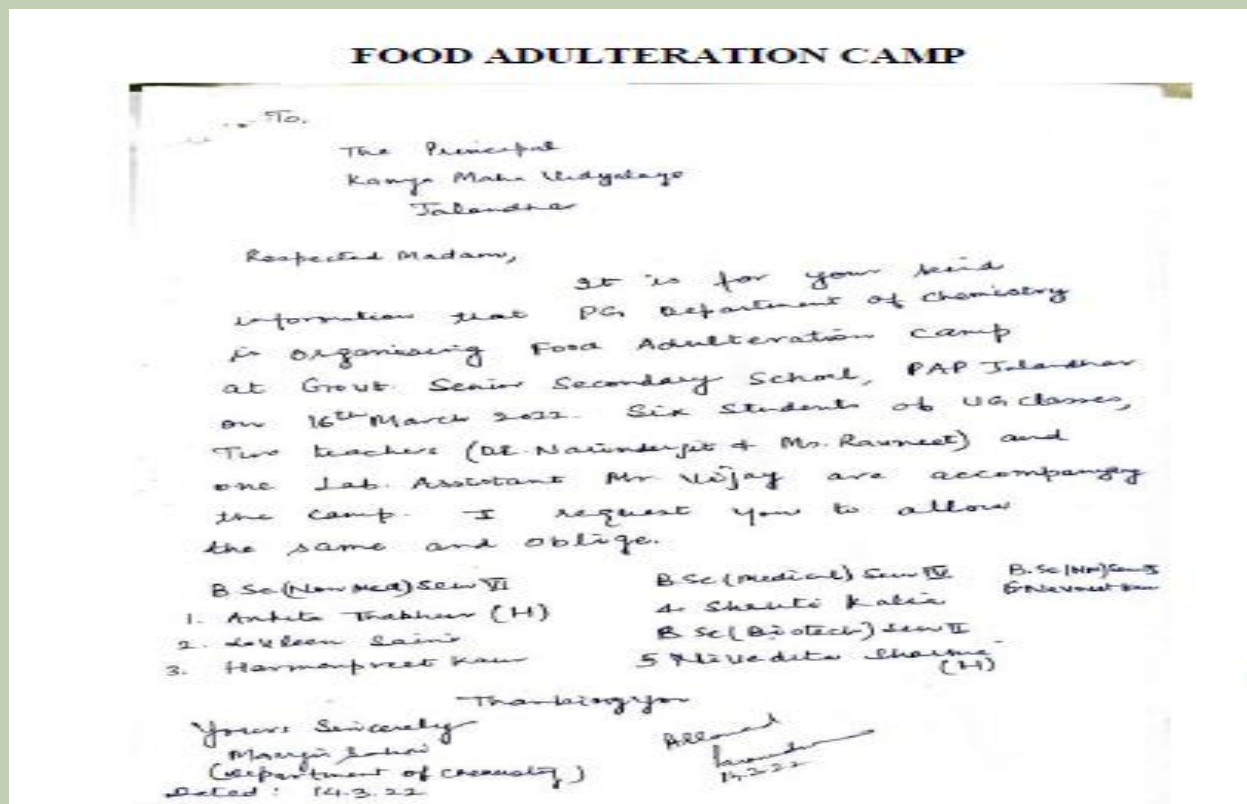 FOOD ADULTERATION CAMP
To,
The Principal
Kanya Maha Vidyalaya
Jalandhar
Respected Madam,
It is for your kind
information that PG Department of Chemistry
is organising Food Adulteration Camp
at Govt. Senior Secondary School, PAP Jalandhar
on 16th March 2022. Six Students of UG classes,
Two teachers (Dr. Narinderjit & Ms. Ravneet) and
one Lab. Assistant Mr Vijay are accompanying
the camp. I request you to allow
the same and oblige.
B Sc (Non Med) Sem VI B Sc (Medical) Sem IV B.Sc (NM) Sem
1. Ankita Thakur (H) 4 Kalia 6 Navneet Kaur
2. Saini B Sc (Biotech) Sem II
3. Harmanpreet Kaur 5 Nivedita Sharma
(H)
Thanking you
Yours Sincerely
Allowed
(Department of Chemistry)
14.3.22
Dated: 14.3.22